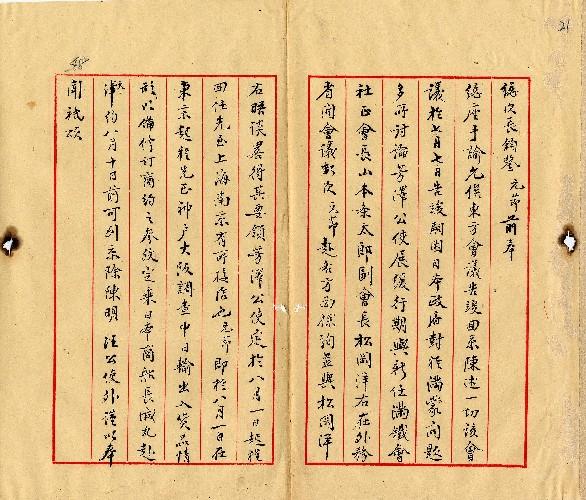 21
總次長鈞鑒元節前奉
總座手諭允俟東方會議告竣回京陳述一切該會
議於七月七日告竣嗣因日本政府對於滿蒙問題
多所討論芳澤公使展緩行期與新任滿鐵會
社正會長山本条太郎副會長松岡洋右在外務
省開會議數次元節赴各方面採詢並與松岡洋
右晤談盡得其要領芳澤公使定於八月一日起程
回任先至上海南京有所接洽也元節即於八月一日在
東京起程先至神戶大阪調查中日輸出入貨品情
形以備修訂商約之參攷定乘日本商船長城丸赴
津約八月十日前可到京除陳明汪公使外謹以奉
聞祗頌